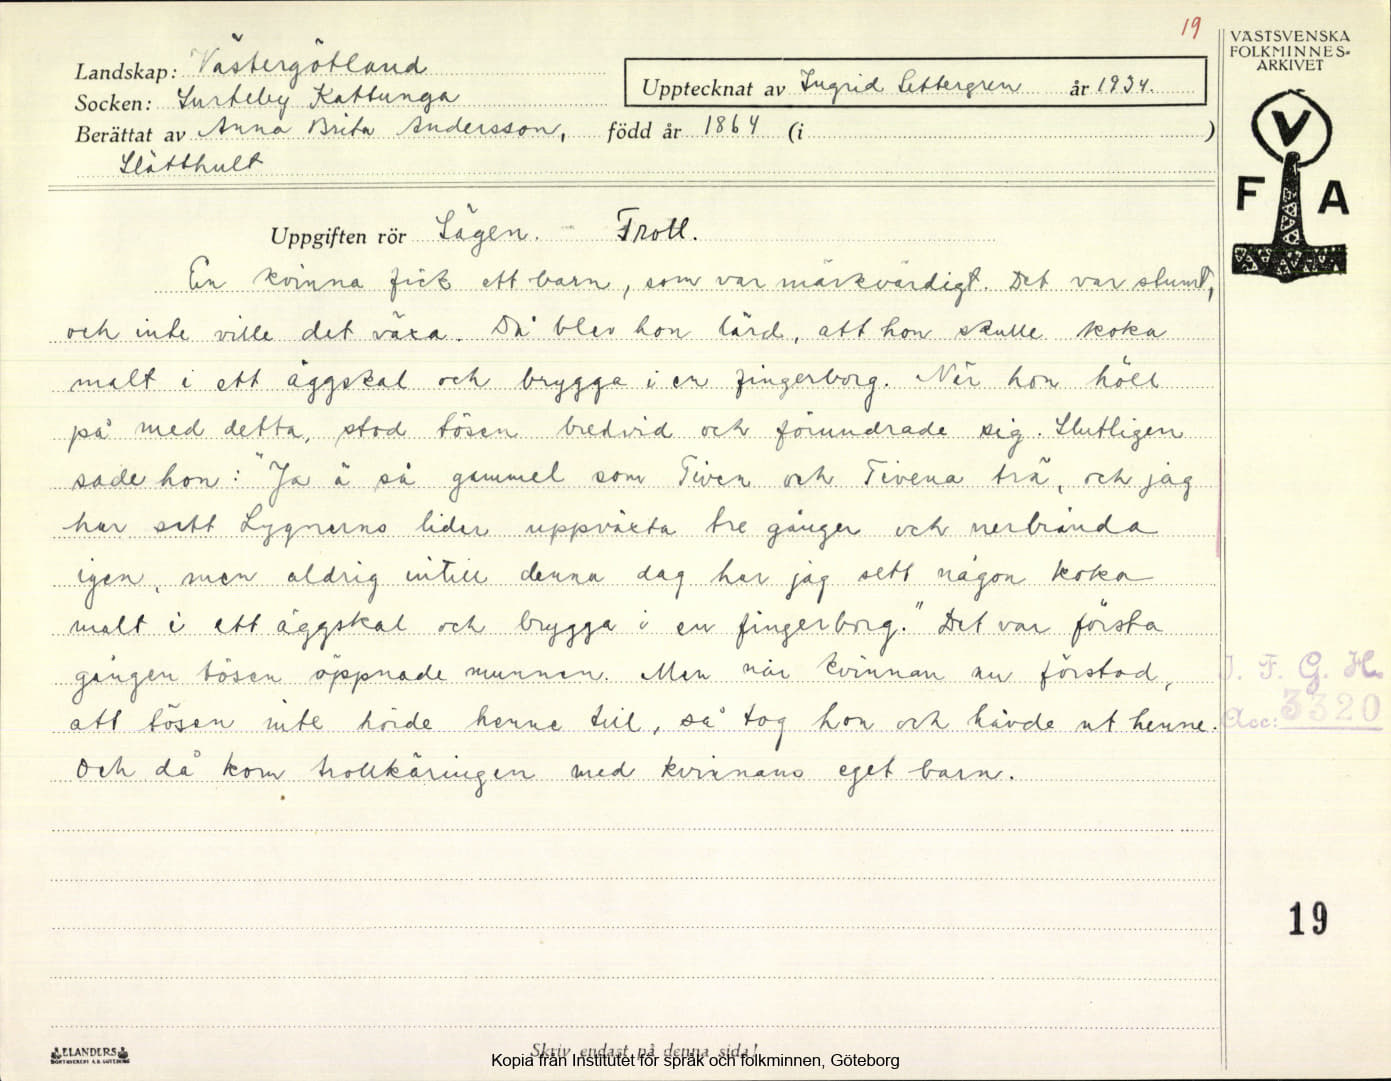 19
VÄSTSVENSKA
FOLKMINNES-
ARKIVET
Landskap: Västergötland
Upptecknat av Ingrid Settergren år 1934.
Socken: Surteby Kattunga
Berättat av Anna Brita Andersson, född år 1864 (i )
Slätthult
V
F A
Uppgiften rör Sägen. - Troll.
En kvinna fick ett barn, som var märkvärdigt. Det var stumt,
och inte ville det växa. Då blev hon lärd, att hon skulle koka
malt i ett äggskal och brygga i en fingerborg. När hon höll
på med detta, stod tösen bredvid och förundrade sig. Slutligen
sade hon: "Ja ä så gammel som Tiven och Tivena trä, och jag
har sett Lygnerns lider uppväxta tre gånger och nerbrända
igen, men aldrig intill denna dag har jag sett någon koka
malt i ett äggskal och brygga i en fingerborg." Det var första
gången tösen öppnade munnen. Men när kvinnan nu förstod,
att tösen inte hörde henne till, så tog hon och hävde ut henne.
Och då kom trollkäringen med kvinnans eget barn.
I. F. G. H.
Acc: 3320
19
ELANDERS
BOKTRYCKERI A.B. GÖTEBORG
Skriv endast på denna sida!
Kopia från Institutet för språk och folkminnen, Göteborg